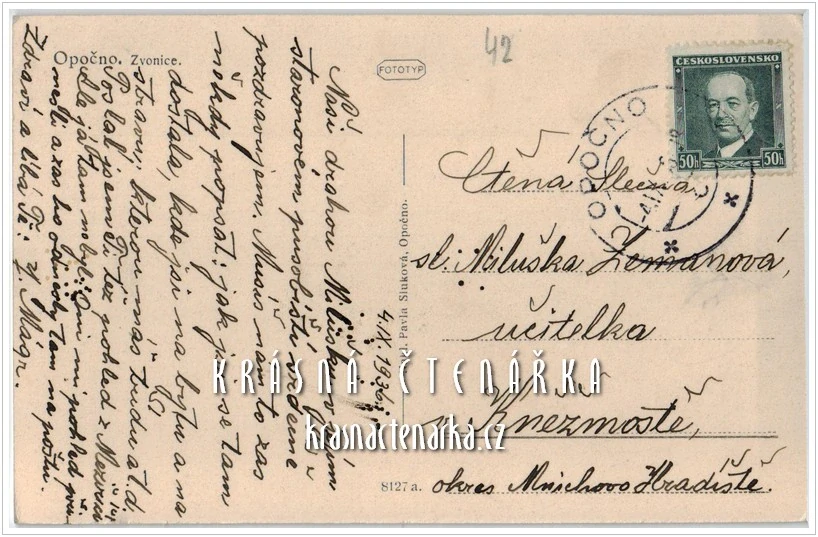 Opočno. Zvonice.
FOTOTYP
42
ČESKOSLOVENSKO
50h 50h
OPOČNO
Ctěná Slečna
sl. Miluška Zemanová,
učitelka
v Kněžmostě,
okres Mnichovo Hradiště.
Pavla Sluková, Opočno.
8127 a.
4.IX.1936.
Naši drahou Milušku v
staronovém působišti srdečně
pozdravujem. Musíš nám to zas
někdy popsat: jak jsi se tam
dostala, kde jsi na bytu a na
stravu, kterou máš třídu atd.
Poslal jsem Ti též pohled z
ale já tam nebyl. Oni mi pohled
a zas ho odnesly tam na poštu.
Zdraví a líbá Tě: Mágr.
KRÁSNÁ ČTENÁŘKA
krasnactenarka.cz